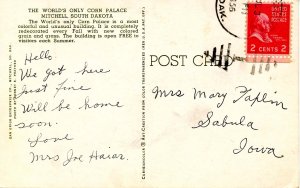 THE WORLD'S ONLY CORN PALACE
MITCHELL, SOUTH DAKOTA
The World's only Corn Palace is a most
colorful and unusual building. It is completely
redecorated every Fall with new colored
grain and grass. The building is open FREE to
visitors each Summer.
Hello
We got here
just fine
Will be home
soon.
Love
Mrs Joe Haiar.
POST CARD
2 CENTS 2
Mrs Mary Taplin
Sabula
Iowa